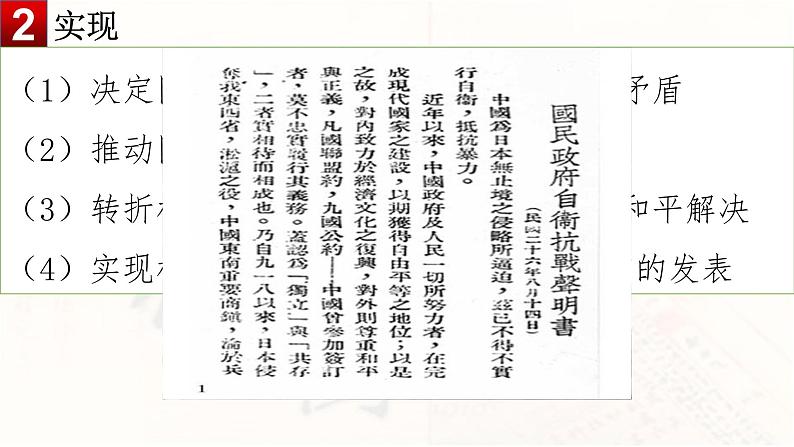 2 实现
(1)决定
矛盾
(2)推动
(3)转折
和平解决
(4)实现
的发表
國民政府自衞抗戰聲明書
(民國二十六年八月十四日)
中國爲日本無止境之侵略所逼迫,茲已不得不實
行自衞,抵抗暴力。
近年以來,中國政府及人民一切所努力者,在完
成現代國家之建設,以期獲得自由平等之地位;以是
之故,對內致力於經濟文化之復興,對外則尊重和平
與正義,凡國聯盟約,九國公約——中國曾參加簽訂
者,莫不忠實履行其義務。蓋認爲「獨立」與「共存
」,二者實相待而相成也。乃自九一八以來,日本侵
奪我東四省,淞滬之役,中國東南重要商鎮,淪於兵
1